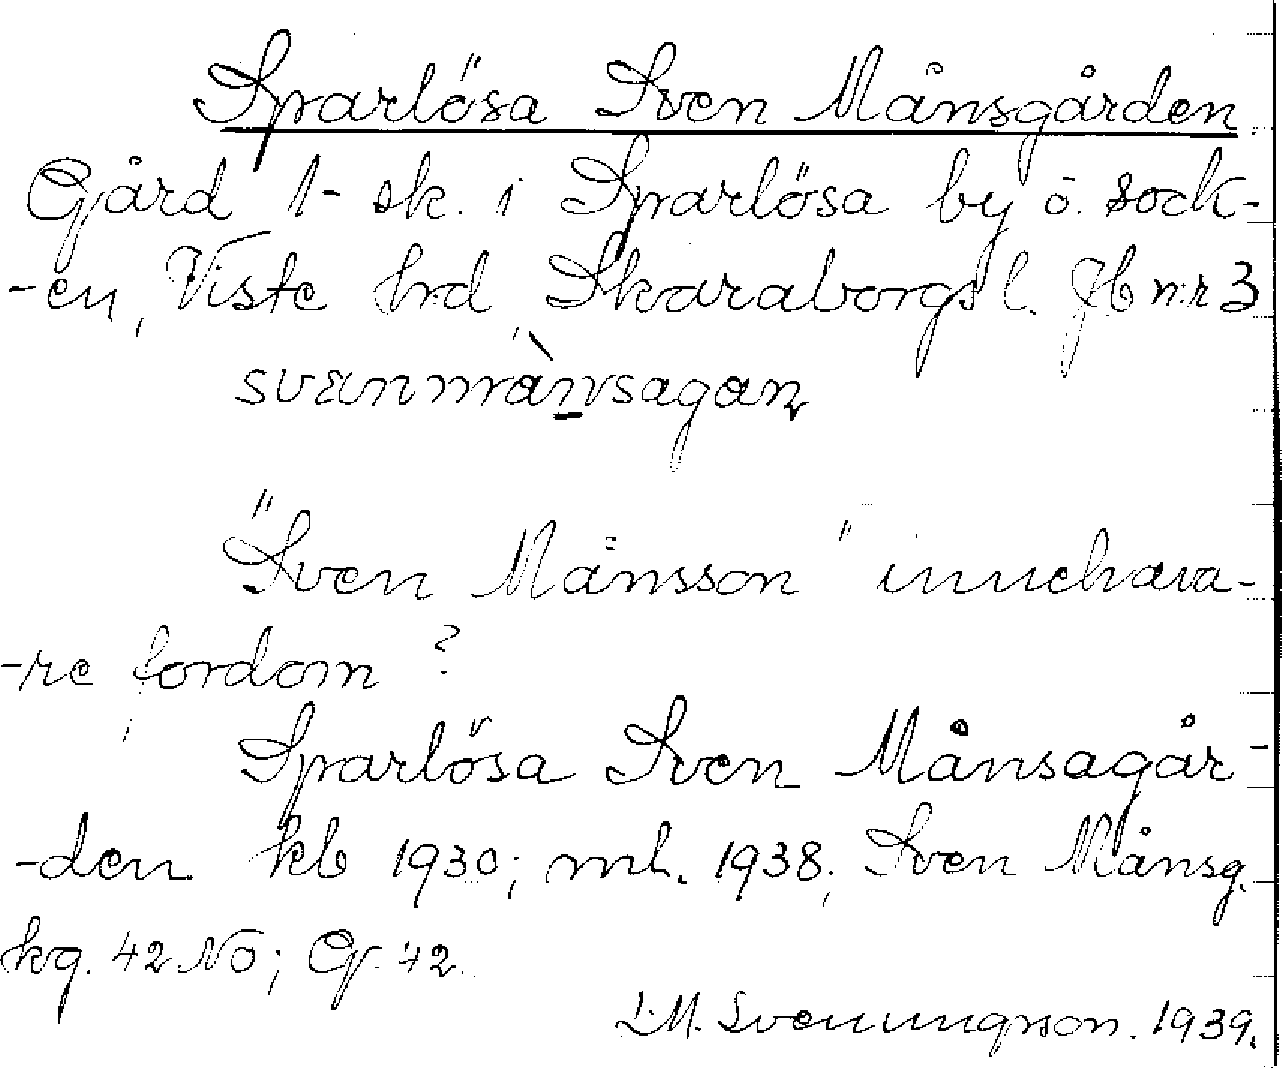 Sparlösa Sven Månsgården
Gård 1- sk. i Sparlösa by o. sock-
-en, Viste hrd, Skaraborgs l. Jb nr 3
"Sven Månsson" innehava-
-re fordom?
Sparlösa Sven Månsagår-
-den kb 1930; ml. 1938; Sven Månsg.
kg. 42 NO; G. 42.
1939.